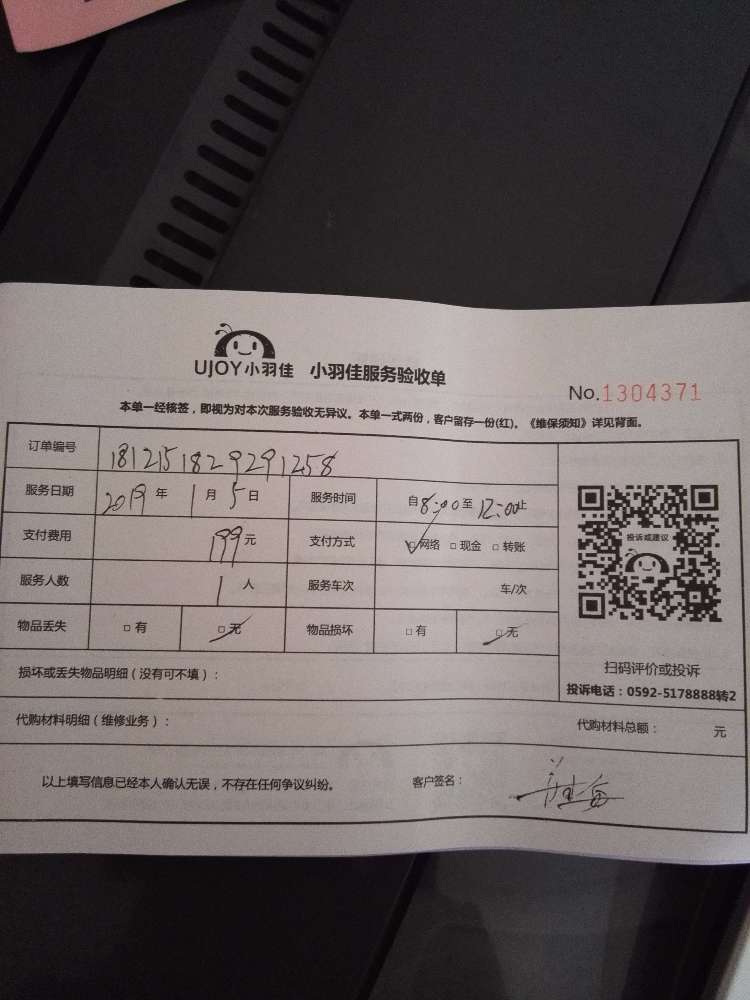 UJOY小羽佳 小羽佳服务验收单
No.1304371
本单一经核签，即视为对本次服务验收无异议。本单一式两份，客户留存一份(红)。《维保须知》详见背面。
订单编号 1812151829291258
服务日期 2019年1月5日 服务时间 自8:00至12:00止
支付费用 199元 支付方式 □网络 □现金 □转账
服务人数 1人 服务车次 车/次
物品丢失 □有 □无 物品损坏 □有 □无
投诉或建议
扫码评价或投诉
投诉电话：0592-5178888转2
损坏或丢失物品明细（没有可不填）：
代购材料明细（维修业务）： 代购材料总额： 元
以上填写信息已经本人确认无误，不存在任何争议纠纷。 客户签名：